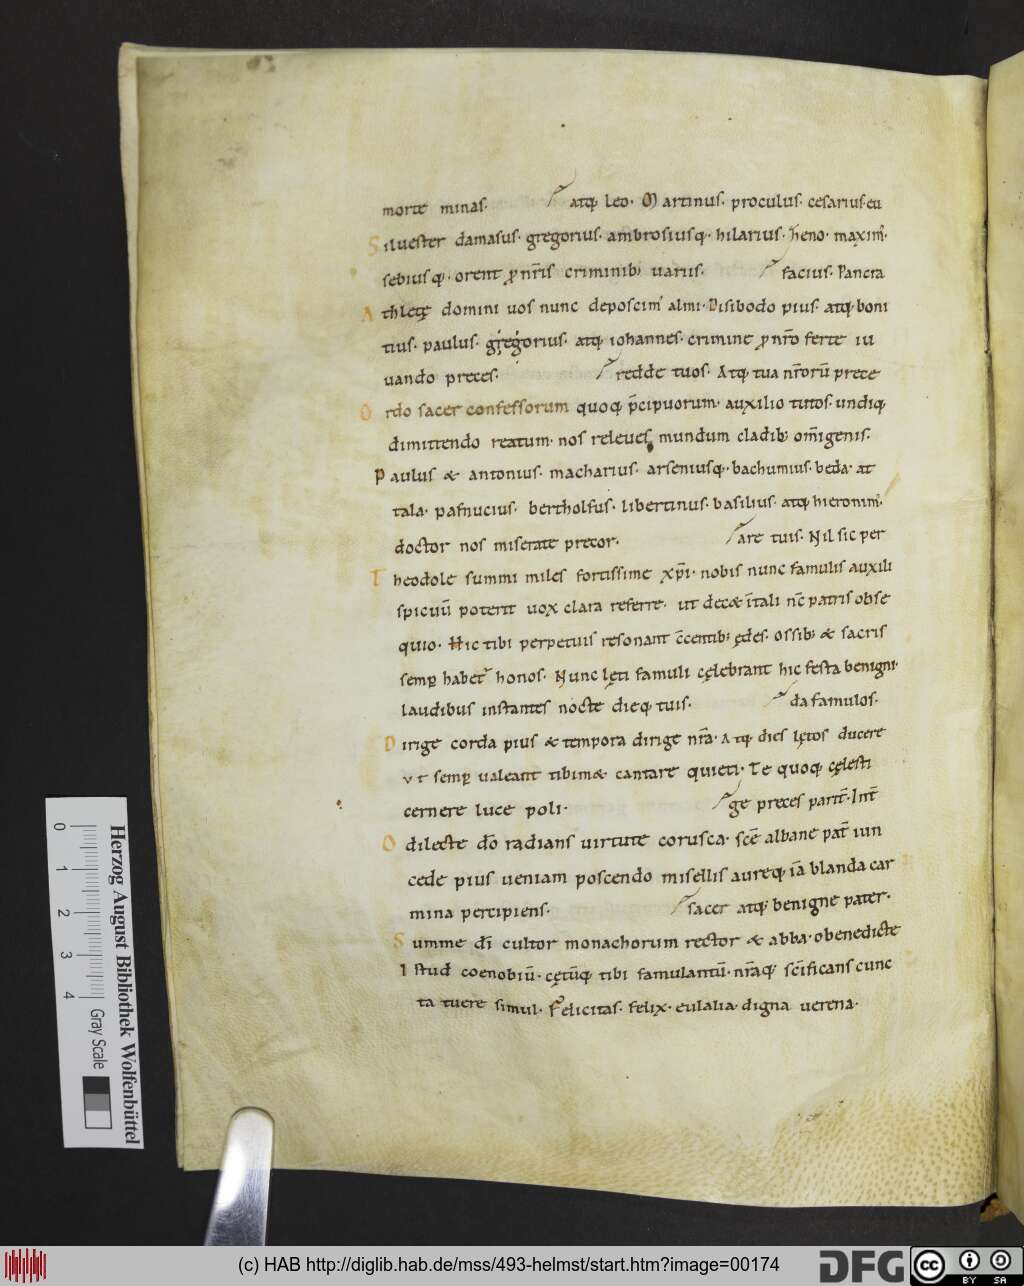 morte minas· atq; leo· Martinus· proculus· cesarius· eu
Siluester damasus· gregorius· ambrosiusq;· hilarius· heno· maxim᷒·
sebiusq;· orent ꝓ nr̄is criminib; uariis· facius· Pancra
Athletę domini uos nunc deposcim᷒ almi· Disibodo pius· atq; boni
tius· paulus· gregorius· atq; iohannes· crimine ꝓ nr̄o ferte iu
uando preces· redde tuos· Atq; tua nr̄orū prece
Ordo sacer confessorum quoq; p̄cipuorum· auxilio tutos· undiq;
dimittendo reatum· nos releues mundum cladib; om̄igenis·
Paulus & antonius· macharius· arseniusq;· bachumius· beda· at
tala· pafnucius· bertholfus· libertinus· basilius· atq; hieronim᷒·
doctor nos miserate precor· are tuis· Nil sic per
Theodole summi miles fortissime xp̄i· nobis nunc famulis auxili
spicuū poterit uox clara referre· ut dec& īt́ali nc̄ patris obse
quio· Hic tibi perpetuis resonant c̄centib; ędes· ossib; & sacris
semp̱ habet᷒ honos· Nunc lęti famuli cęlebrant hic festa benigni·
laudibus instantes nocte dieq; tuis· da famulos·
Dirige corda pius & tempora dirige nr̄a· Atq; dies lętos ducere
ut semp̱ ualeant tibim& cantare quieti· Te quoq; cęlesti
cernere luce poli· ge preces parit̄· Int̄
O dilecte dō radians uirtute corusca· sc̄e albane pat̄ iun
cede pius ueniam poscendo misellis aureq; īa blanda car
mina percipiens· sacer atq; benigne pater·
Summe dī cultor monachorum rector & abba· o benedicte
Istud coenobiū· cętūq; tibi famulantū· nr̄aq; sc̄ificans cunc
ta tuere simul· Felicitas· felix· eulalia· digna uerena·
Herzog August Bibliothek Wolfenbüttel
0 1 2 3 4 Gray Scale
(c) HAB http://diglib.hab.de/mss/493-helmst/start.htm?image=00174
DFG
cc BY SA